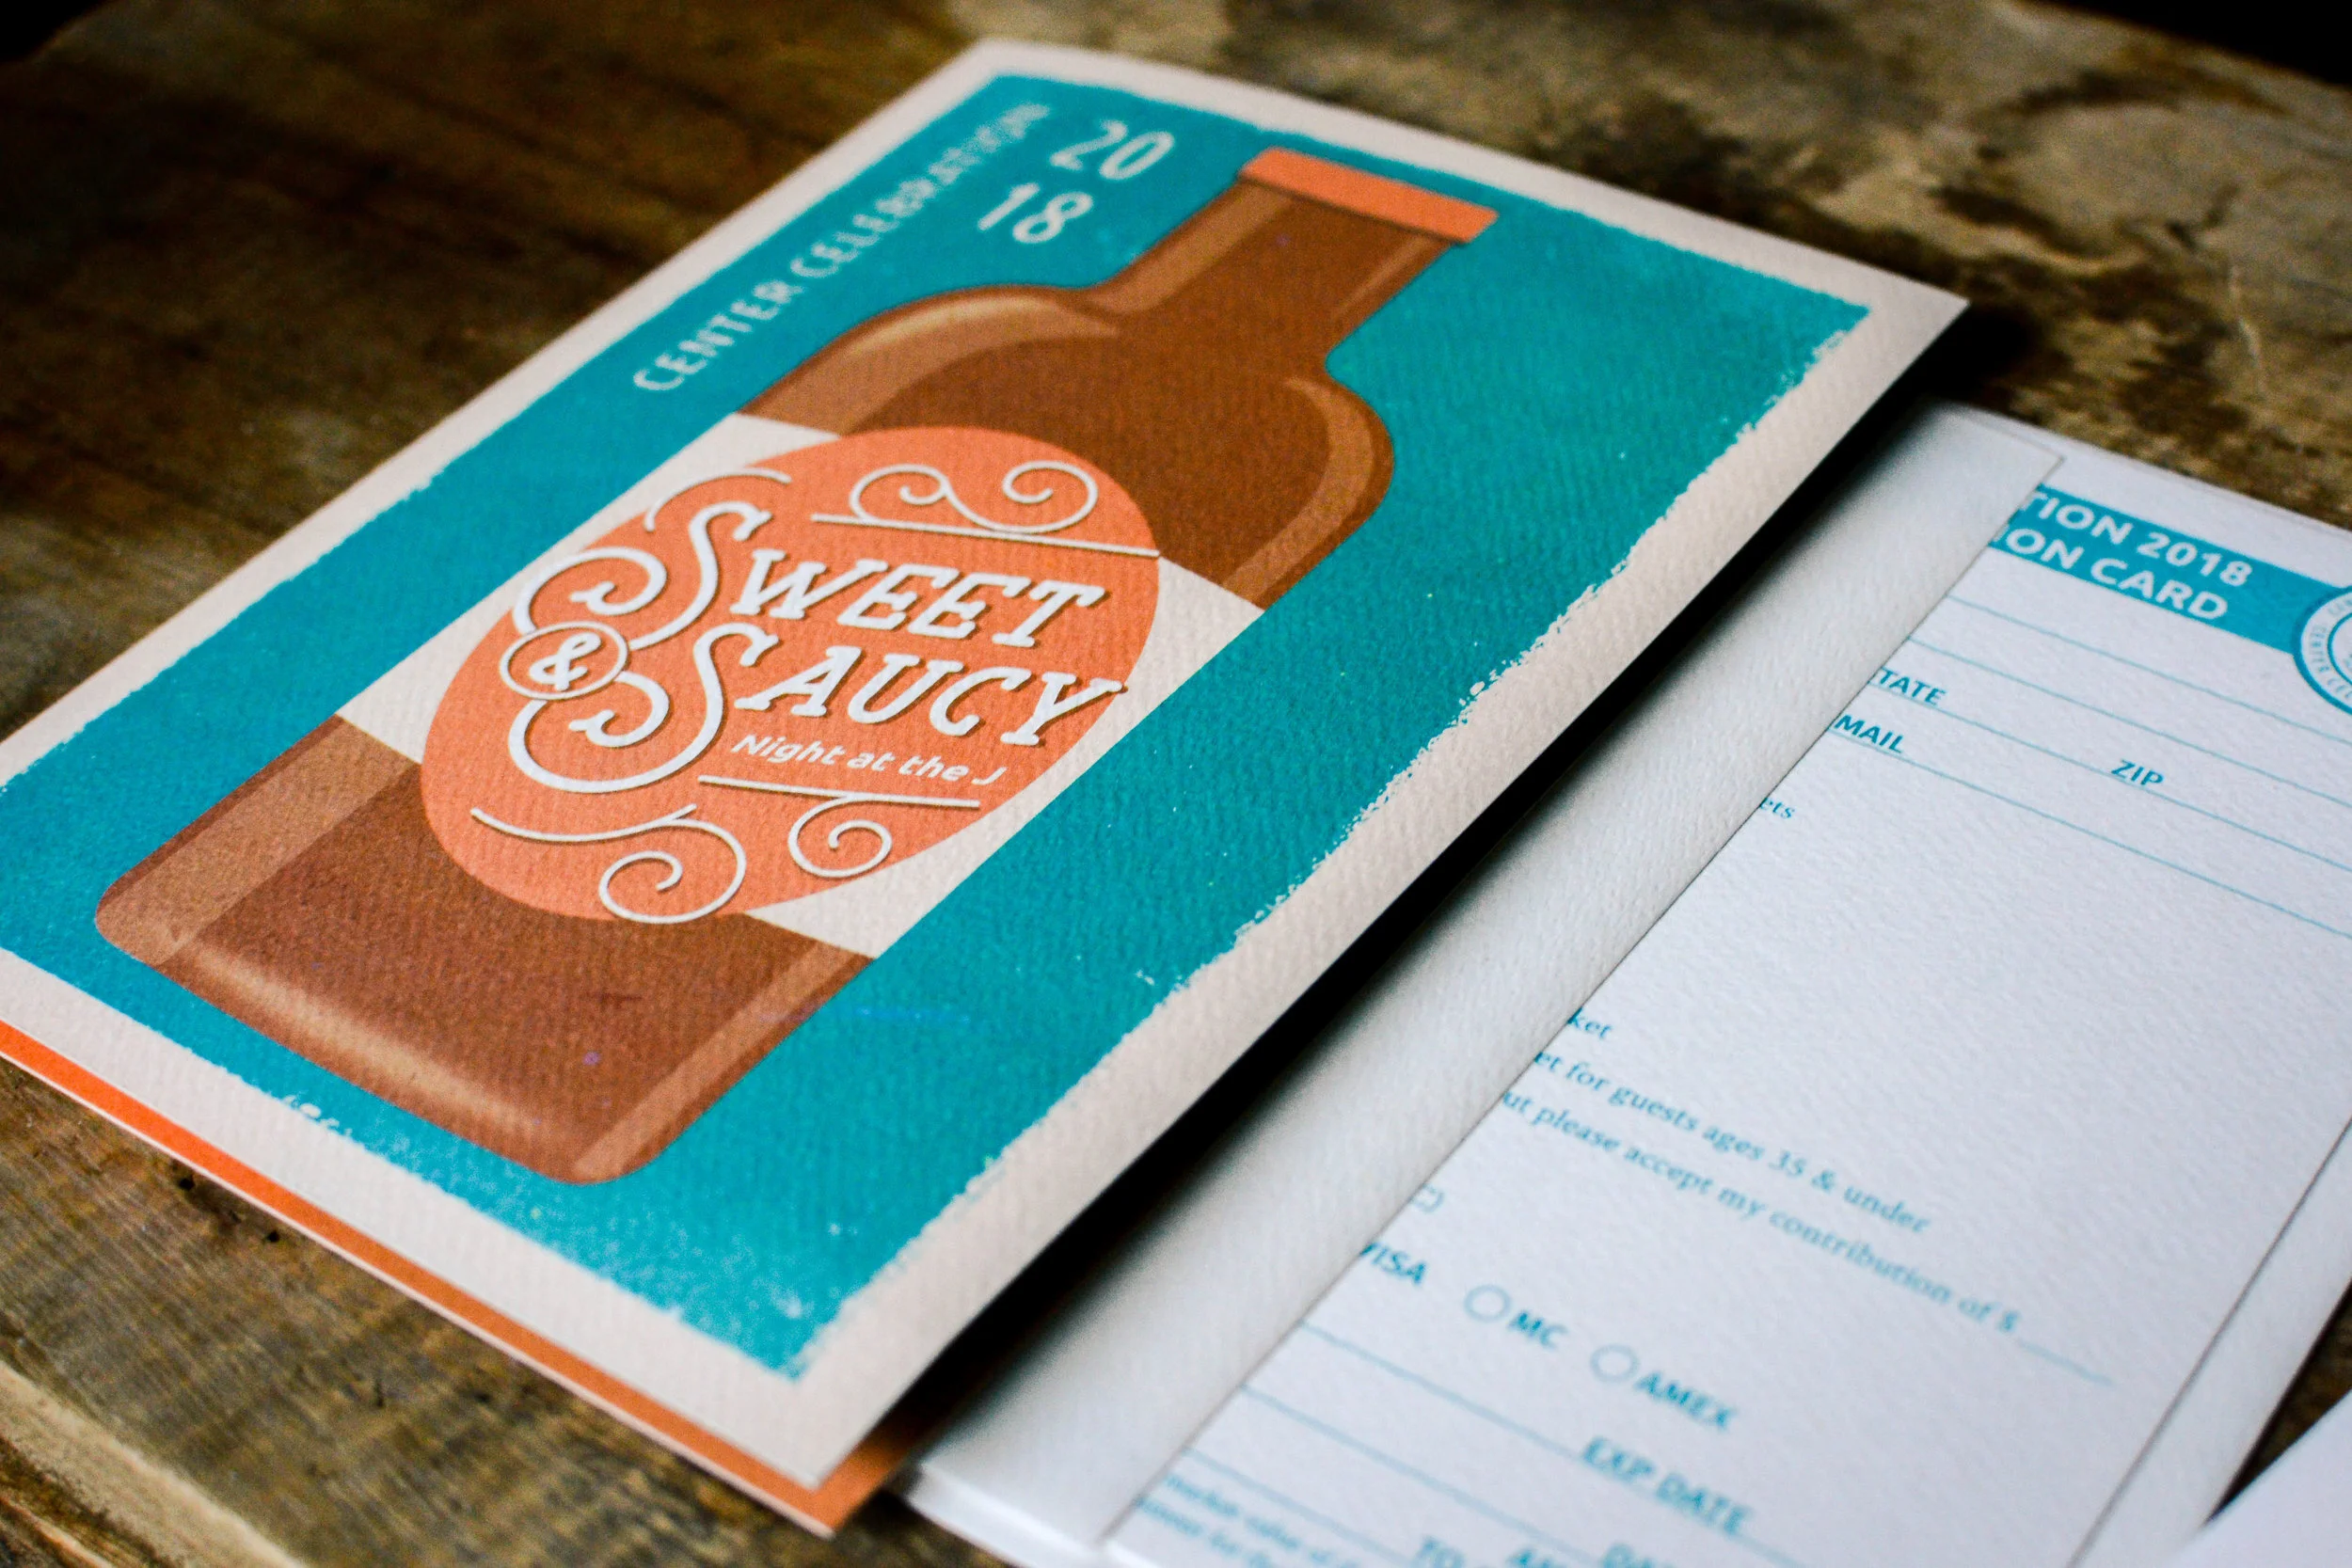 CENTER CELEBRATION
20
18
SWEET
& SAUCY
Night at the J
TION 2018
ION CARD
TATE
MAIL
ZIP
ets
ket
et for guests ages 35 & under
ut please accept my contribution of $
C)
VISA MC AMEX
EXP DATE
TO